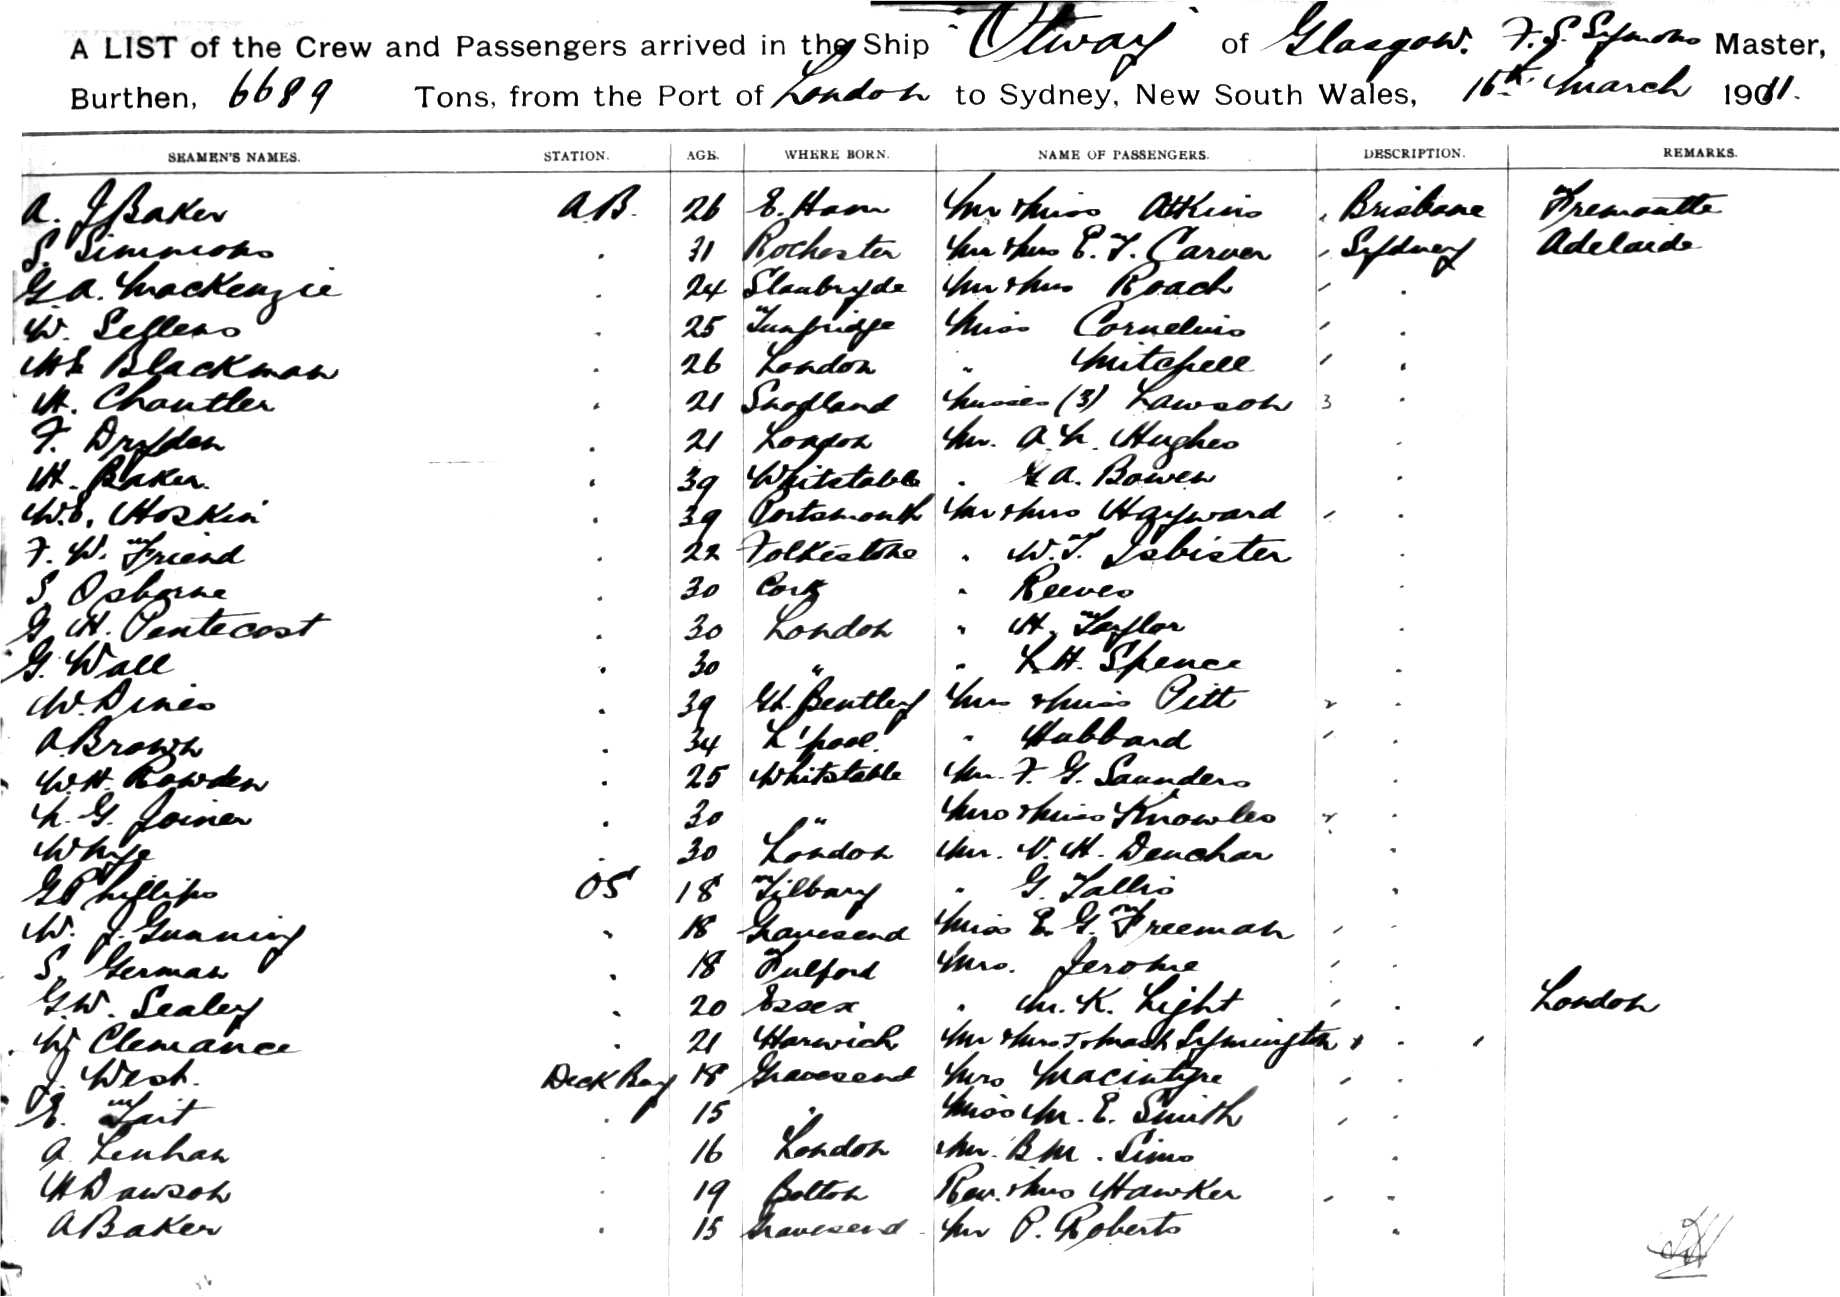 A LIST of the Crew and Passengers arrived in the Ship "Otway" of Glasgow. F. S. Symons Master,
Burthen, 6689 Tons, from the Port of London to Sydney, New South Wales, 16th March 1911.
SEAMEN'S NAMES. STATION. AGE. WHERE BORN. NAME OF PASSENGERS. DESCRIPTION. REMARKS.
A. J Baker A.B. 26 E. Ham Mr & Miss Atkins Brisbane Fremantle
S. Simmons . 31 Rochester Mr & Mrs E. F. Carver Sydney Adelaide
G A. MacKenzie . 24 Mr & Mrs Roach .
W. Sellens . 25 Tunbridge Miss Cornelius .
Blackman . 26 London " Mitchell .
H. Chantler . 21 Snodland Misses (3) Lawson 3 .
F. Dryden . 21 London Mr. A. L. Hughes .
H. Baker. . 39 Whitstable . A. Bowen .
W.E. Hoskin . 39 Portsmouth Mr & Mrs Hayward .
F. W. Friend . 22 Folkestone . W. T. Isbister .
S Osborne . 30 Cork . Reeves .
G H. Pentecost . 30 London " H. Taylor .
G. Wall . 30 " . L. H. Spence .
W. Dines . 39 Gt. Bentley Mrs & Miss Pitt .
A Brown . 34 L'pool. " Hubbard .
W. H. Rowden . 25 Whitstable Mr. F. G. Saunders .
L. G. Joiner . 30 " Mrs & Miss Knowles .
W . 30 London Mr. V. H. Deuchar .
G Phillips OS 18 Tilbury . G. Tallis .
W. J. Gunning . 18 Gravesend Miss E. G. Freeman .
S. German . 18 Fulford Mrs. Jerome .
G. W. Sealey . 20 Essex . M. K. Light . London
W Clemance . 21 Harwich Mr & Mrs Symington .
J. West. Deck Boy 18 Gravesend Mrs Macintyre .
E. Tait . 15 . Miss M. E. Smith .
A Lenhan . 16 London Mr. B M. Sims .
H Dawson . 19 Bolton Rev. & Mrs Hawker .
A Baker . 15 Gravesend Mr P. Roberts .